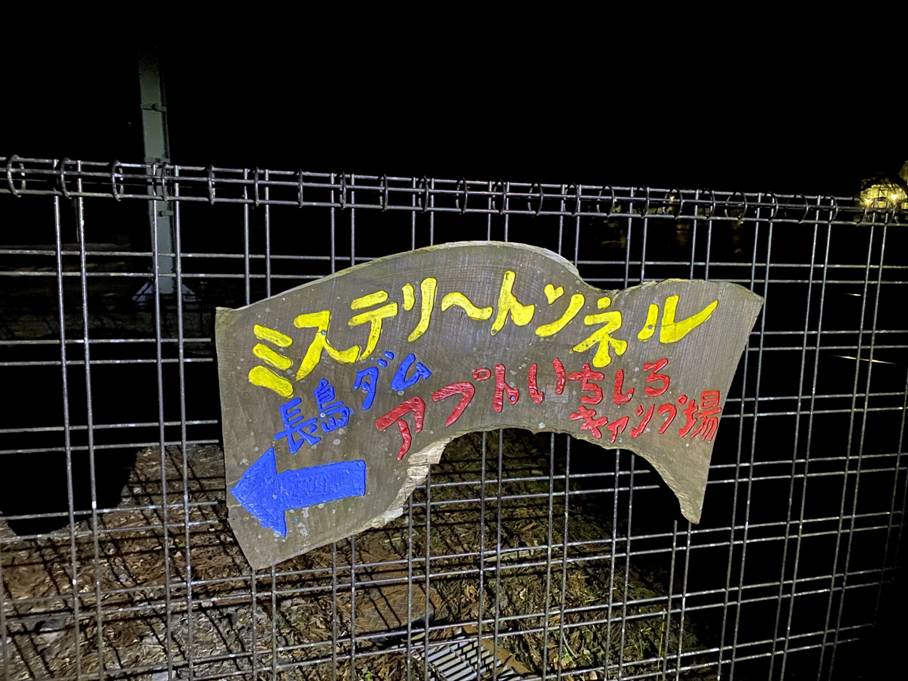 ミステリ〜トンネル
長島ダム
アプトいちしろ
キャンプ場